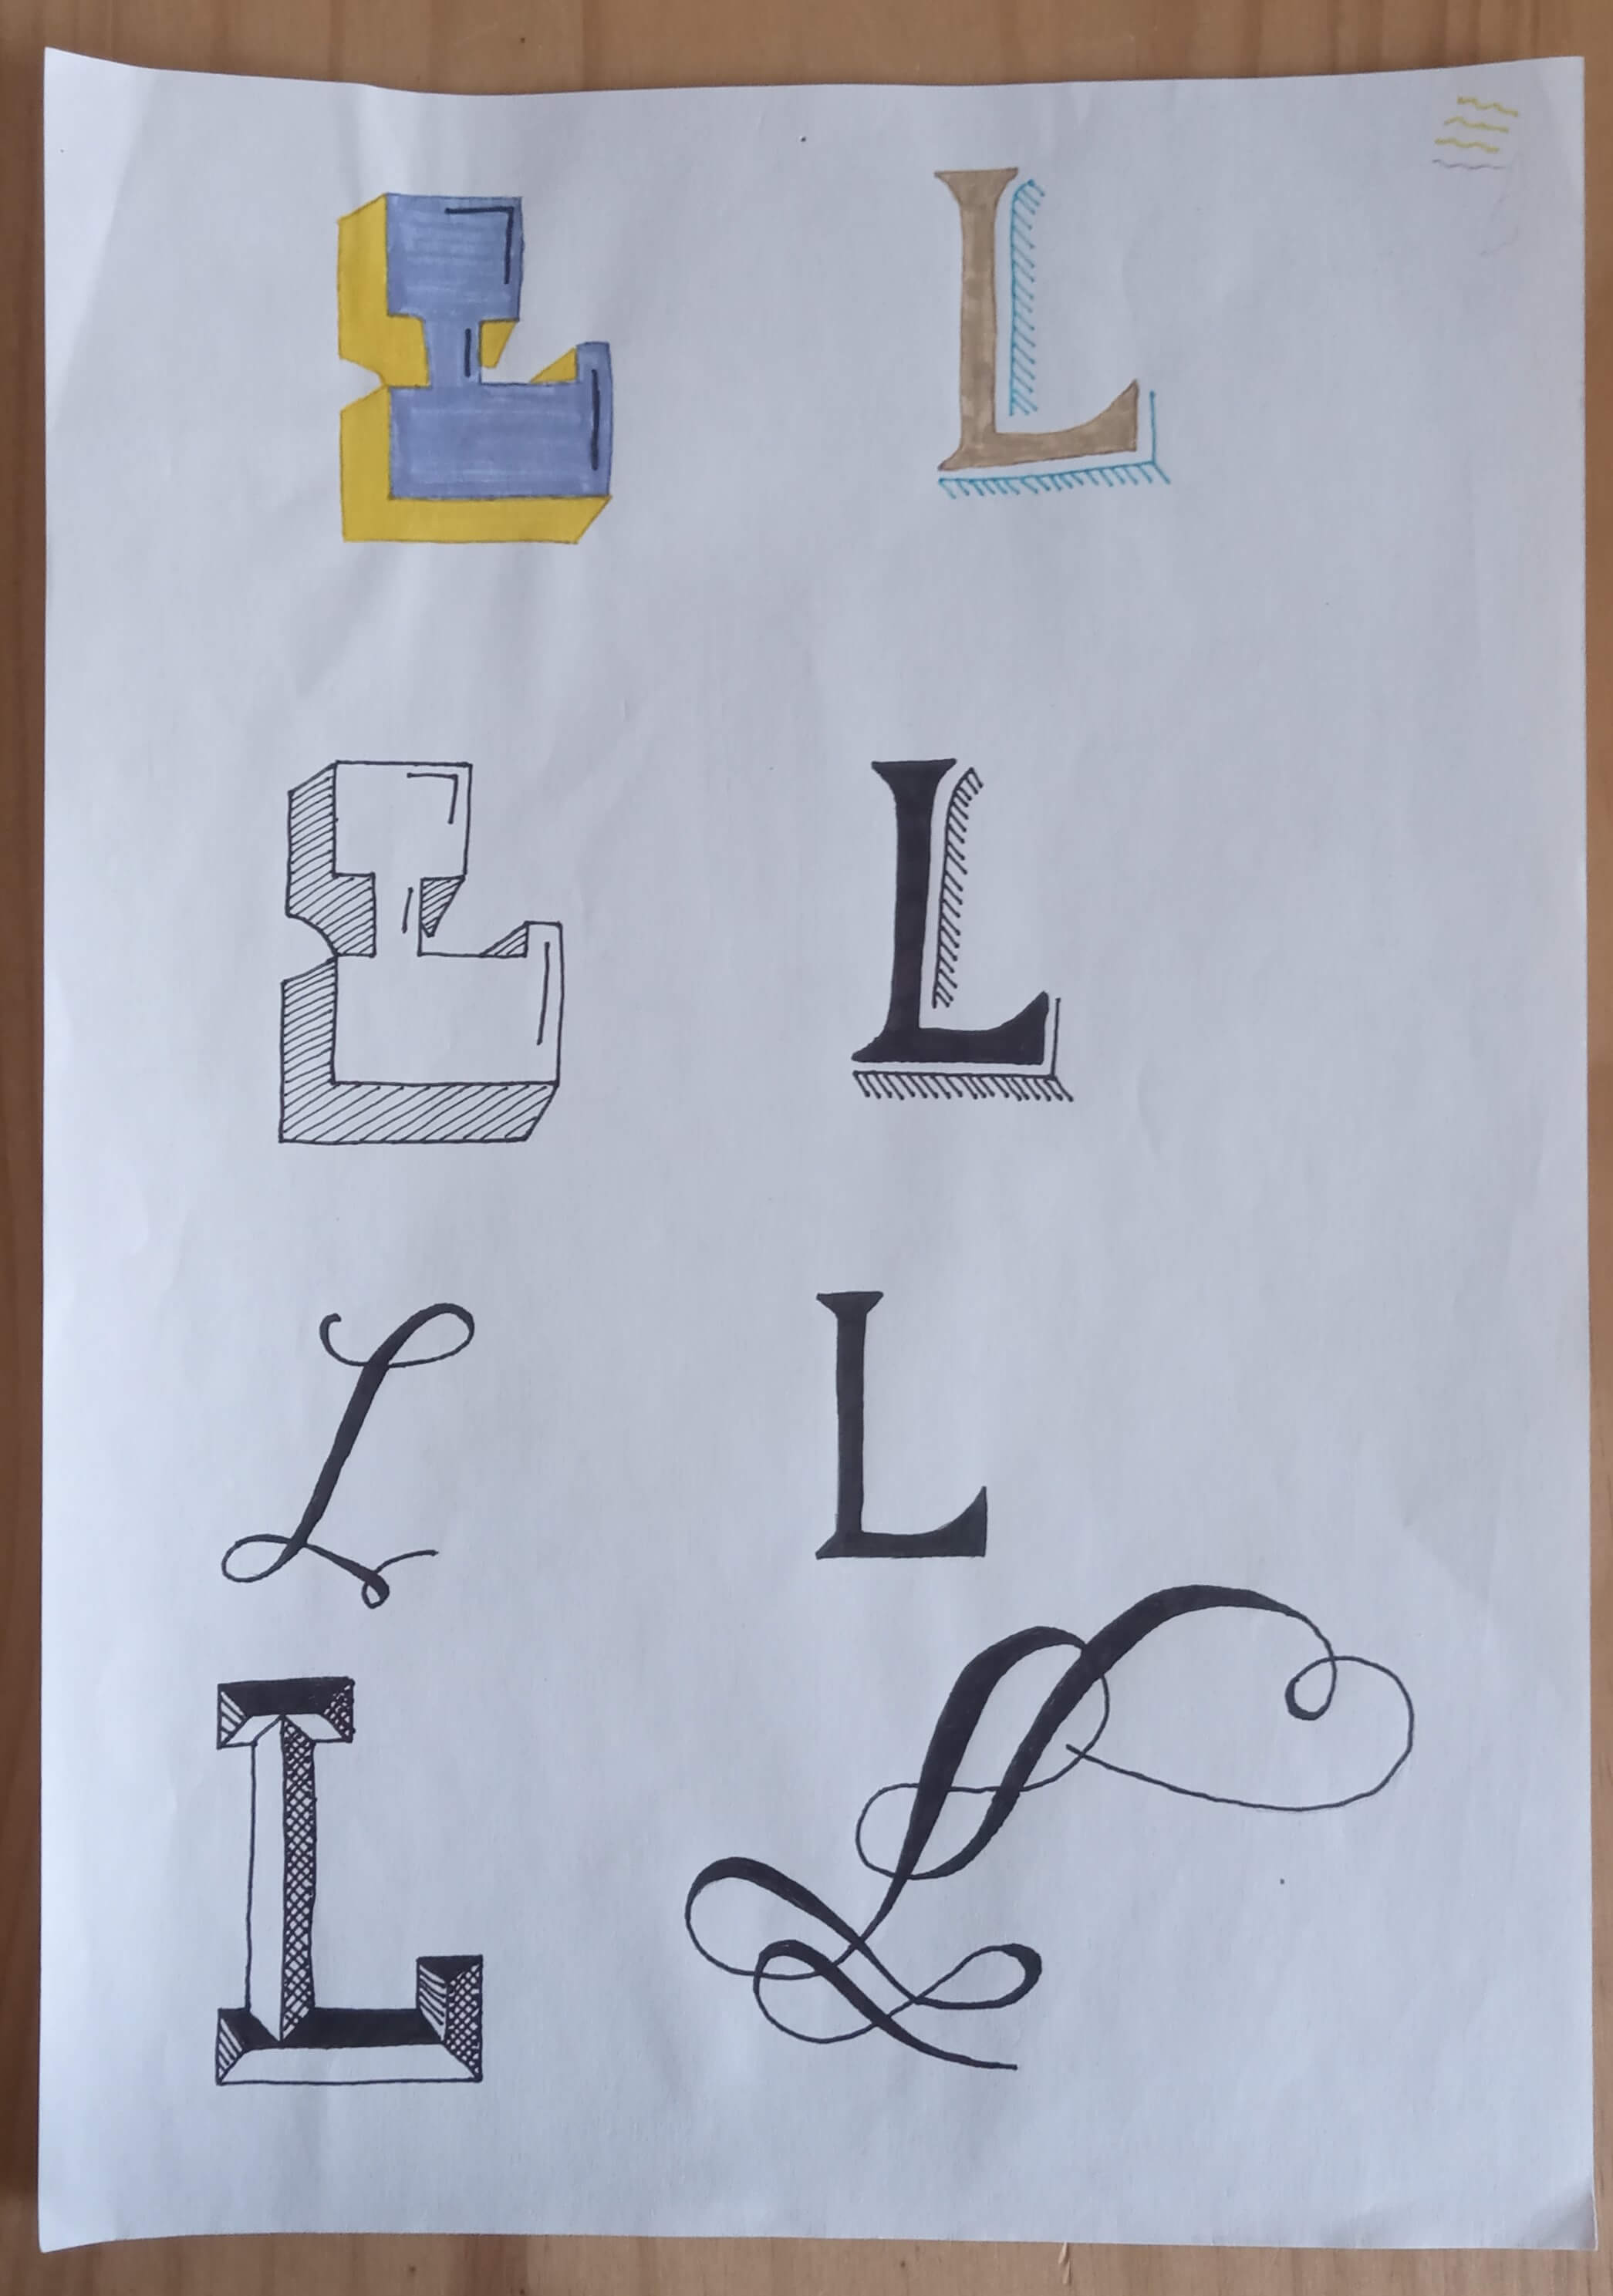 L L
L L
L L
L L